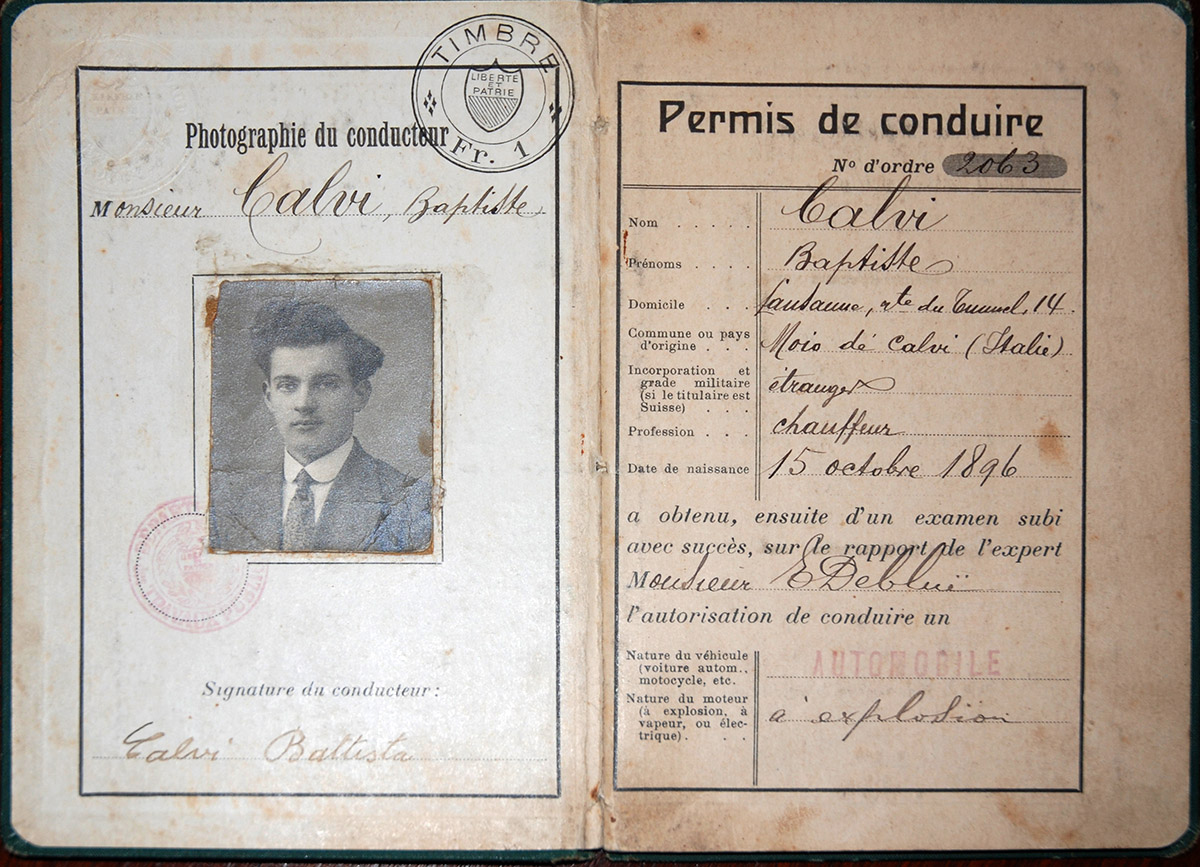 TIMBRE
LIBERTE
ET
PATRIE
Fr. 1
Photographie du conducteur
Monsieur Calvi, Baptiste
Signature du conducteur:
Calvi Battista
Permis de conduire
No d'ordre 2063
Nom . . . . . Calvi
Prénoms . . . . Baptiste
Domicile . . . Lausanne, rte du Tunnel, 14.
Commune ou pays
d'origine . . . Moio dé Calvi (Italie)
Incorporation et
grade militaire
(si le titulaire est
Suisse) . . . . étranger
Profession . . . chauffeur
Date de naissance 15 octobre 1896
a obtenu, ensuite d'un examen subi
avec succès, sur le rapport de l'expert
Monsieur E Debluë
l'autorisation de conduire un
Nature du véhicule
(voiture autom.,
motocycle, etc. AUTOMOBILE
Nature du moteur
(à explosion, à
vapeur, ou élec-
trique). . . à explosion